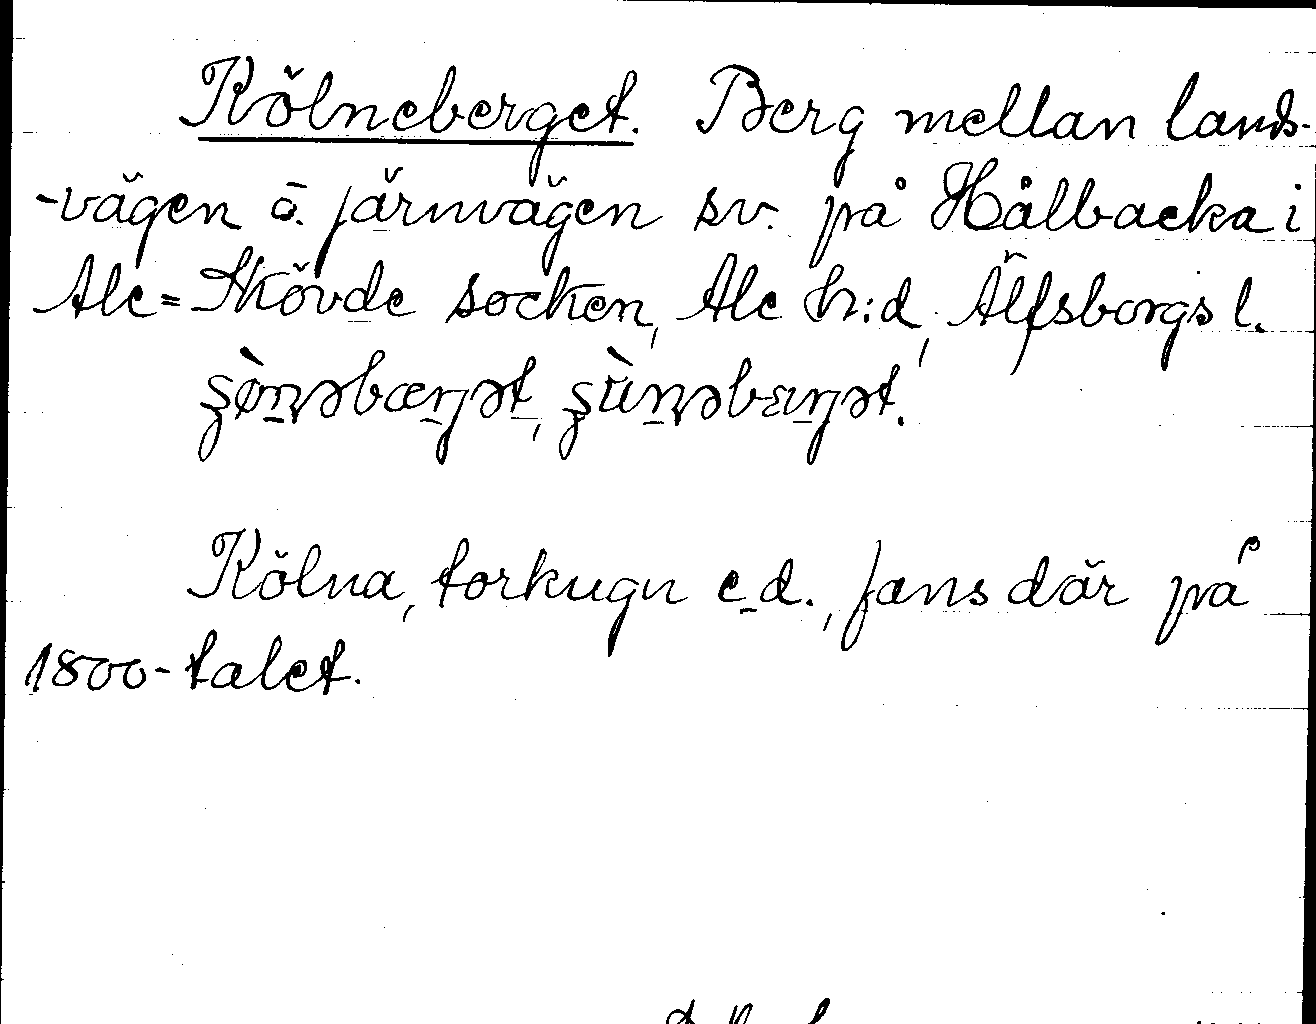 Kölneberget. Berg mellan lands-
-vägen o. järnvägen sv. på Hålbacka i
Ale=Skövde socken, Ale h:d, Älfsborgs l.
Kölna, torkugn e.d., fans där på
1800-talet.